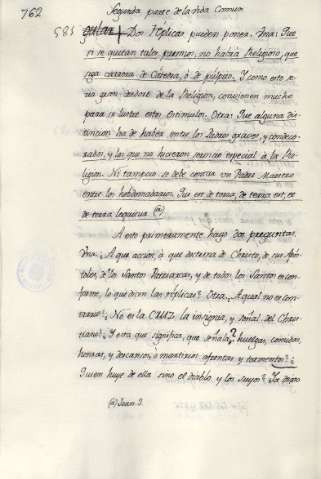 762 Segunda parte de la Vida Comun
585 Dos réplicas pueden ponerse. Una: Que
si se quitan tales premios, no habrá Religioso, que
siga carrera de Catedra, ó de pulpito. Y como esto se-
ria gran de la Religion, convienen mucho
para su lustre estos Otra: Que alguna dis-
tincion ha de haber entre los Padres graves, y condeco-
rados, y los que no hicieron servicio especial á la Re-
ligion. Ni tampoco se debe contar un Padre Maestro
entre los hebdomadarios. Qui est de terra, de terra est, et
de terra loquitur. @
A esto primeramente hago dos preguntas.
Una: A que accion, ó que doctrina de Christo, de sus Apos-
toles, de los Santos Patriarcas, y de todos los Santos es con-
forme, lo que dicen las réplicas? Otra: A qual no es con-
trario? No es la CRUZ la insignia, y señal del Chris-
tiano? Y esta que significa, que señala? huelgas, comidas,
honras, y descansos, ó martirios, afrentas, y tormentos?
Quien huye de ella sino el diablo, y los suyos? Ya dejado
@ Joan 3.